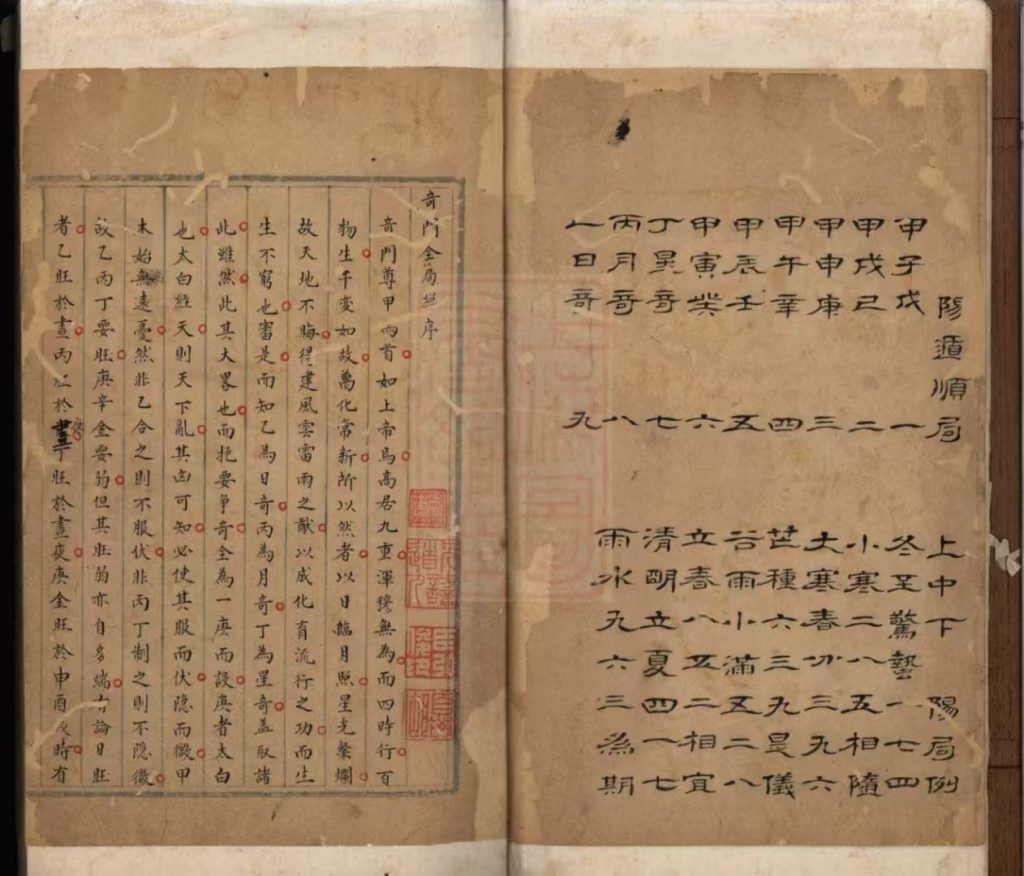 陽遁順局　上中下　陽局例
甲子戊　一　冬至驚蟄一七四
甲戌己　二　小寒二八五相隨
甲申庚　三　大寒春分三九六
甲午辛　四　芒種六三九是儀
甲辰壬　五　谷雨小滿五二八
甲寅癸　六　立春八五二相宜
丁星奇　七　清明立夏四一七
丙月奇　八　雨水九六三為期
乙日奇　九
奇門全局緫序
奇門尊甲為首如上帝焉高居九重渾穆無為而四時行百
物生千變如故萬化常新所以然者以日臨月照星光燦爛
故天地不晦得建風雲雷雨之猷以成化育流行之功而生
生不窮也審是而知乙為日奇丙為月奇丁為星奇盖取諸
此雖然此其大畧也而挹要爭奇全為一庚而設庚者太白
也太白經天則天下亂其凶可知必使其服而伏隐而微甲
木始無遠憂然非乙合之則不服伏非丙丁制之則不隐微
故乙丙丁要旺庚辛金要弱但其旺弱亦自多端有論日旺
者乙旺於晝丙旺於夜丁旺於晝夜庚金旺於申酉戌時有